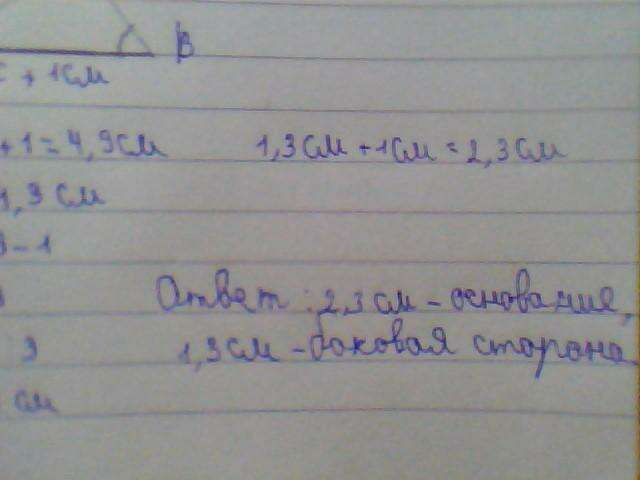 B
+ 1см
+ 1 = 4,9см 1,3см + 1см = 2,3см
1,3 см
- 1
Ответ : 2,3 см - основания,
3 1,3см - боковая сторона
см